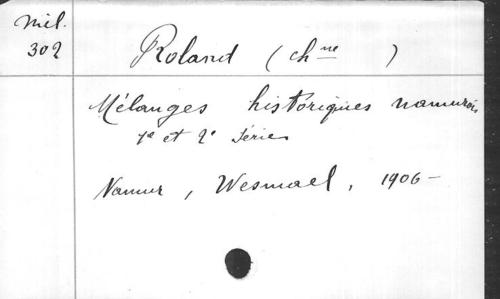 Mél.
302
Roland (chne)
Mélanges historiques namurois
1e et 2e Séries
Namur, Wesmael, 1906-